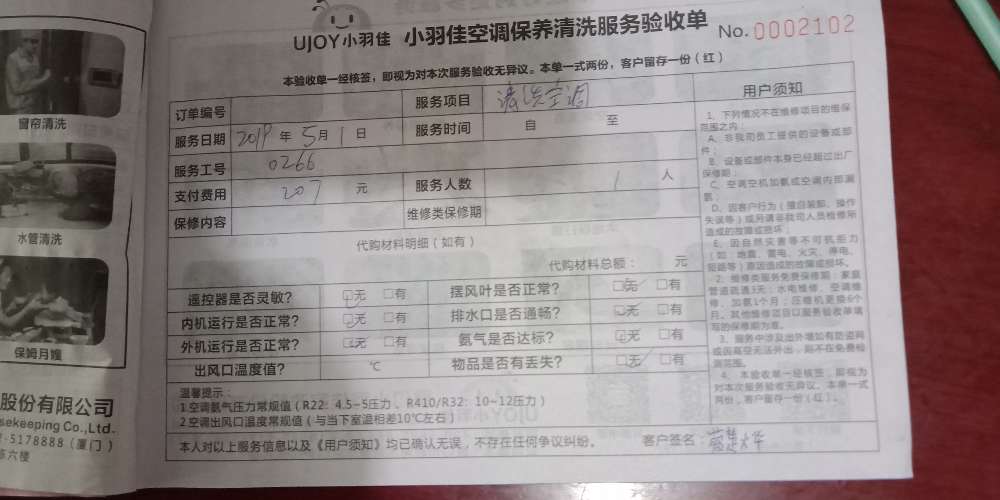 UJOY小羽佳 小羽佳空调保养清洗服务验收单 No. 0002102
本验收单一经核签，即视为对本次服务验收无异议。本单一式两份，客户留存一份（红）
订单编号 服务项目 清洗空调
服务日期 2019 年 5 月 1 日 服务时间 自 至
服务工号 0266
支付费用 207 元 服务人数 1 人
保修内容 维修类保修期
代购材料明细（如有）
代购材料总额： 元
遥控器是否灵敏？ □无 □有 摆风叶是否正常？ □无 □有
内机运行是否正常？ □无 □有 排水口是否通畅？ □无 □有
外机运行是否正常？ □无 □有 氨气是否达标？ □无 □有
出风口温度值？ ℃ 物品是否有丢失？ □无 □有
温馨提示：
1.空调氨气压力常规值（R22：4.5~5压力、R410/R32：10~12压力）
2.空调出风口温度常规值（与当下室温相差10℃左右）
本人对以上服务信息以及《用户须知》均已确认无误，不存在任何争议纠纷。 客户签名：
用户须知
1、下列情况不在维修项目的维保
范围之内：
A、非我司员工提供的设备或部
件；
B、设备或部件本身已经超过出厂
保修期；
C、空调空机加氨或空调内部漏
氨；
D、因客户行为（擅自装卸、操作
失误等）或另请非我司人员检修所
造成的故障或损坏；
E、因自然灾害等不可抗拒力
（如：地震、雷电、火灾、停电、
短路等）原因造成的故障或损坏。
2、维修类服务免费保修期：家庭
管道疏通3天；水电维修、空调维
修、加氨1个月；压缩机更换6个
月。其他维修项目以服务验收单填
写的保修期为准。
3、服务中涉及出外墙如有防盗网
或因高空无法外出，则不在免费检
测范围。
4、本验收单一经核签，即视为
对本次服务验收无异议。本单一式
两份，客户留存一份（红）。
窗帘清洗
水管清洗
保姆月嫂
股份有限公司
sekeeping Co.,Ltd.
-5178888（厦门）
六楼
UJOY小羽佳